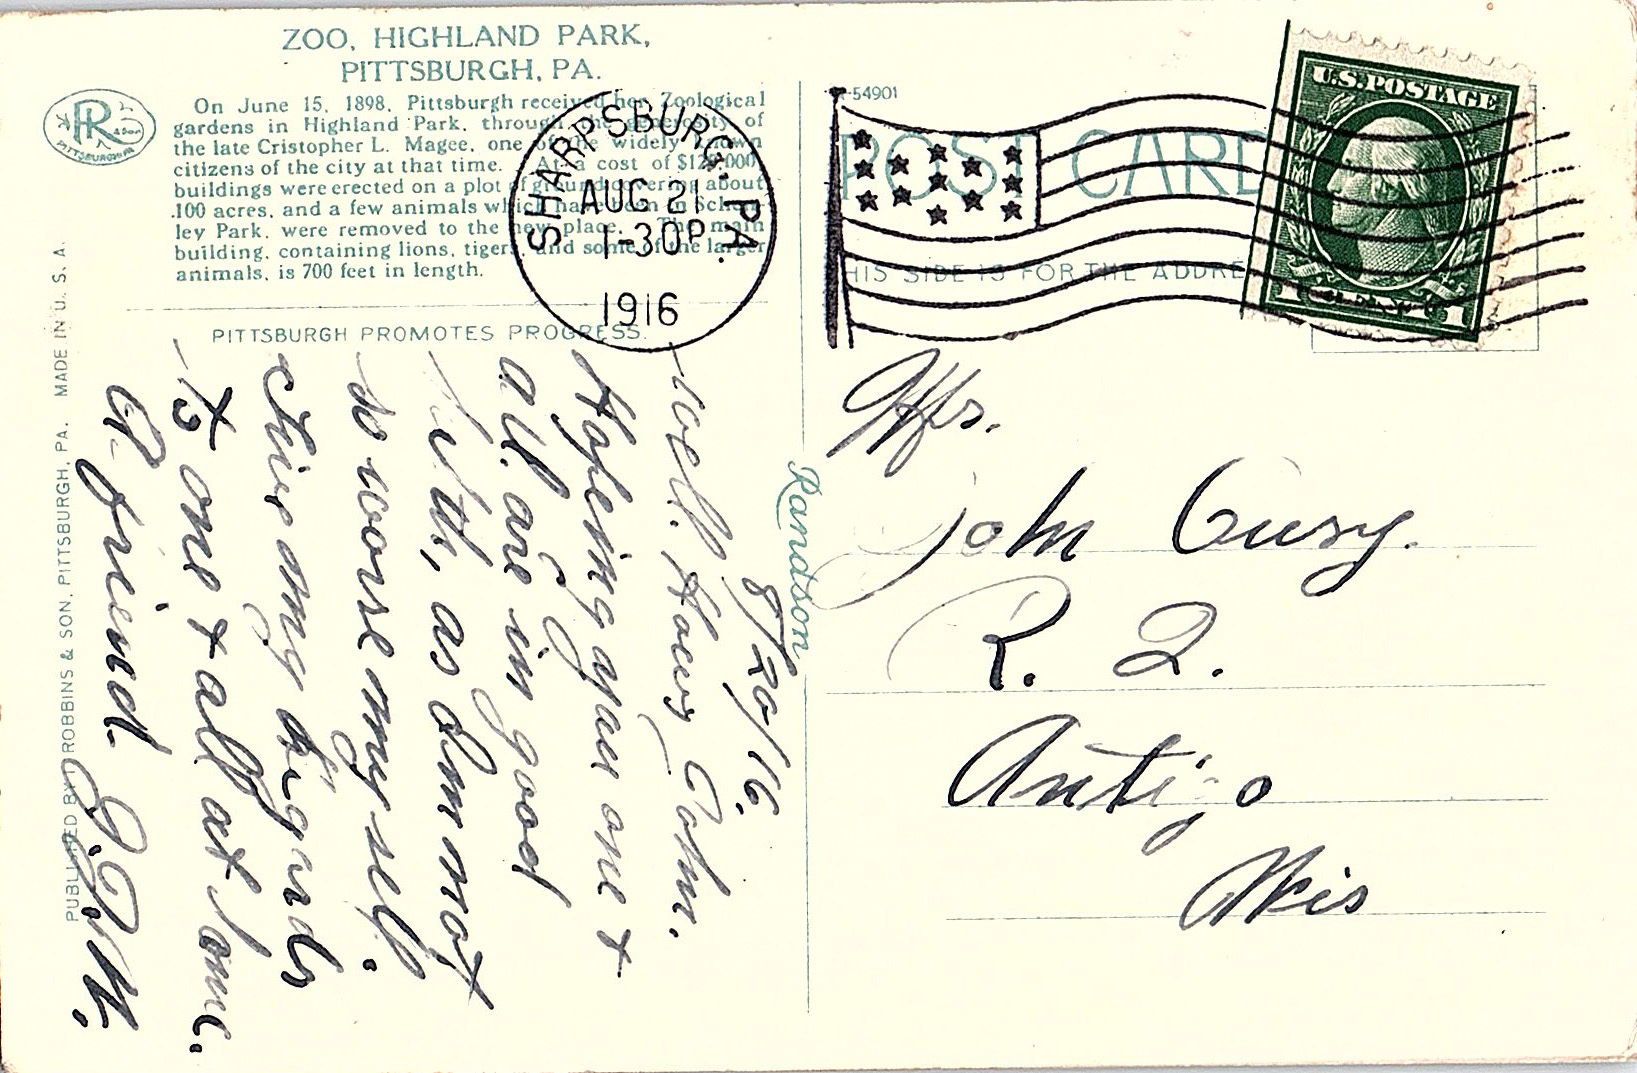 ZOO, HIGHLAND PARK,
PITTSBURGH, PA.
On June 15, 1898, Pittsburgh received her Zoological
gardens in Highland Park, through the generosity of
the late Cristopher L. Magee, one of the widely known
citizens of the city at that time. At a cost of
buildings were erected on a plot of ground covering about
100 acres, and a few animals which had been in Schen-
ley Park, were removed to the new place. The main
building, containing lions, tigers, and some of the larger
animals, is 700 feet in length.
PITTSBURGH PROMOTES PROGRESS.
R
PITTSBURGH PA
PUBLISHED BY ROBBINS & SON, PITTSBURGH, PA. MADE IN U. S. A.
SHARPSBURG, PA.
AUG 21
1-30P
1916
-54901
POST CARD
THIS SIDE IS FOR THE ADDRE
U.S. POSTAGE
1 CENT 1
Randson
8/20/16.
Well. Howy John.
Hopeing you one +
all are in good
health, as I'm not
so worse my self.
Give my regards
to one + all at home.
A friend. J.
Mrs.
John
R. 2.
Antigo
Wis